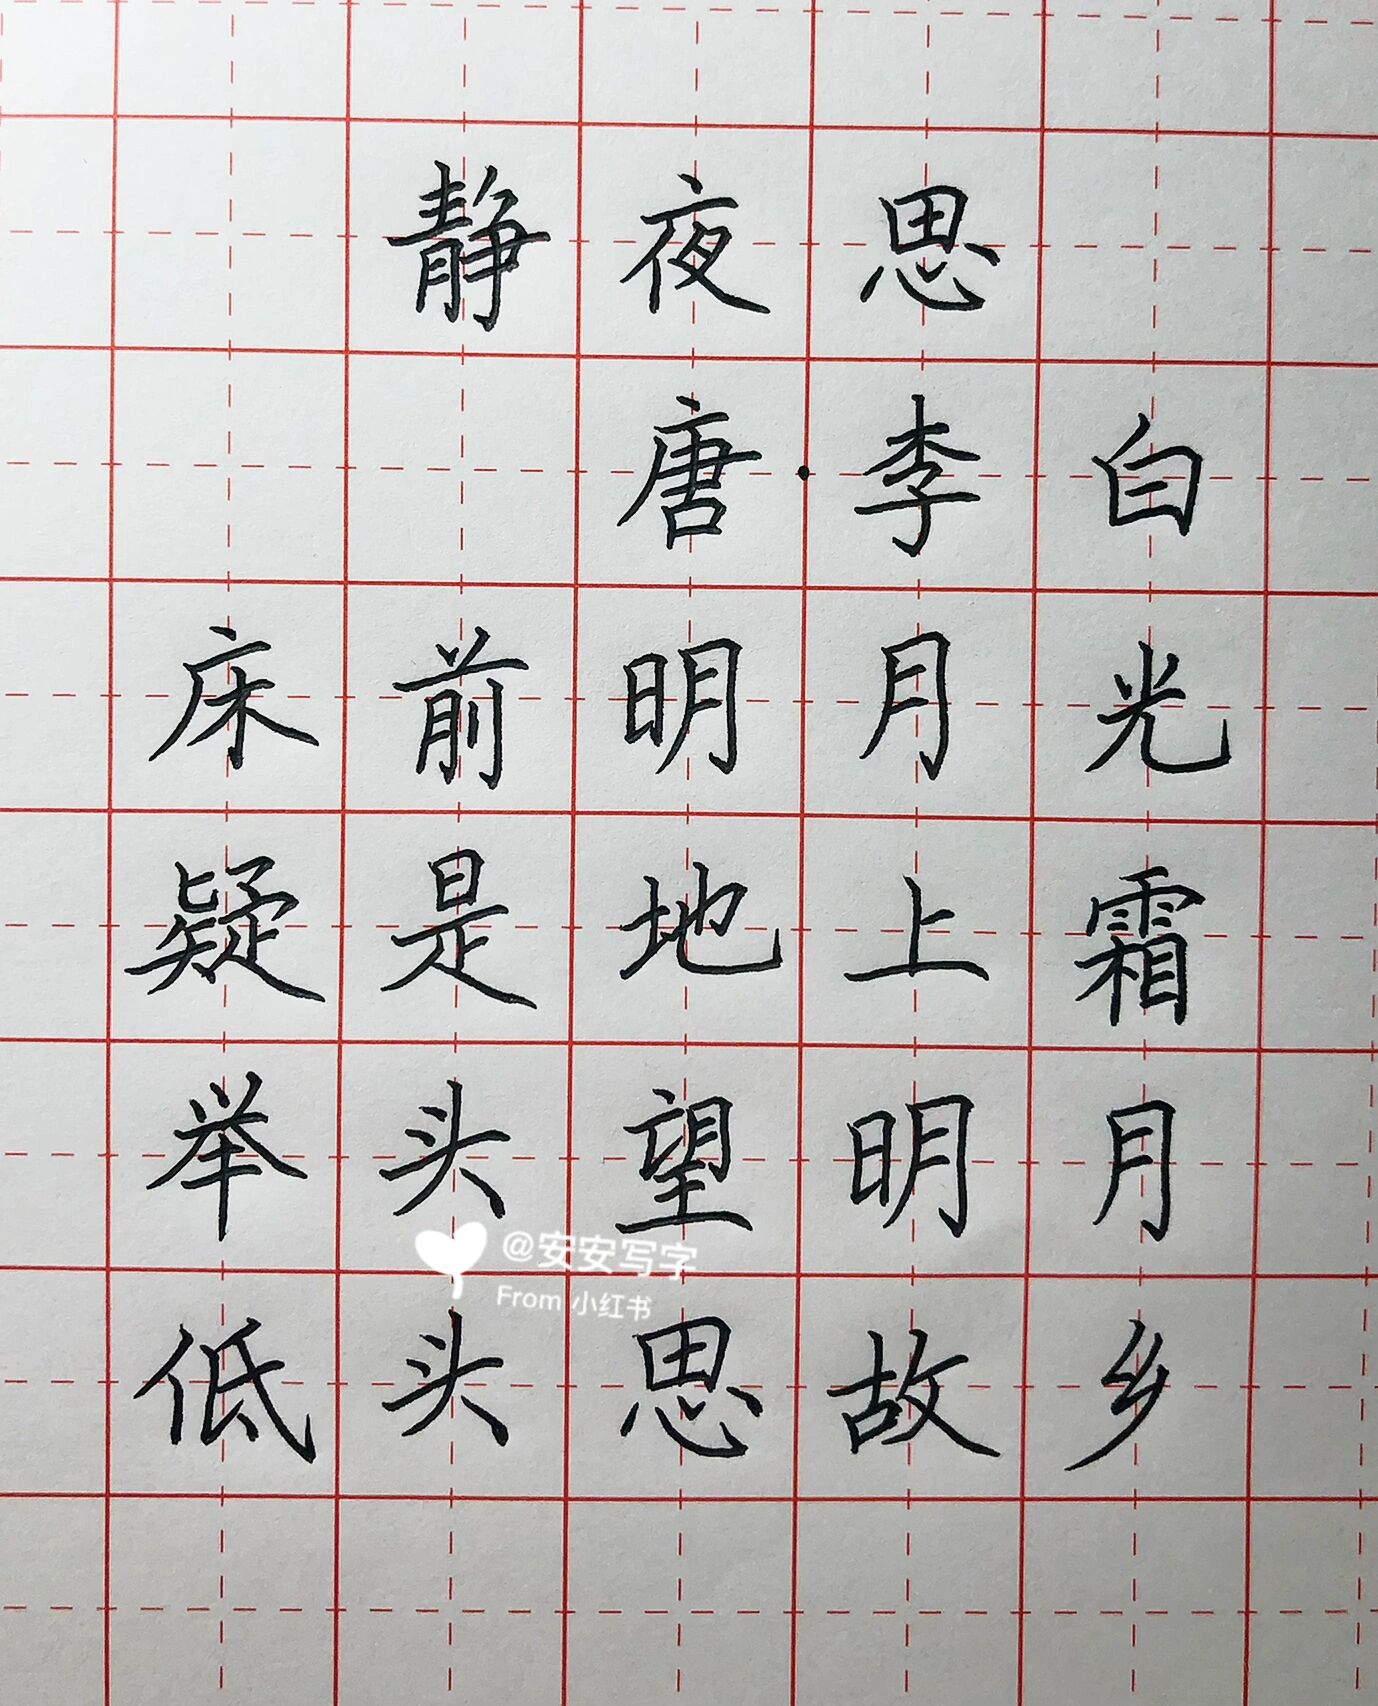 静夜思
唐·李白
床前明月光
疑是地上霜
举头望明月
@安安写字
From 小红书
低头思故乡